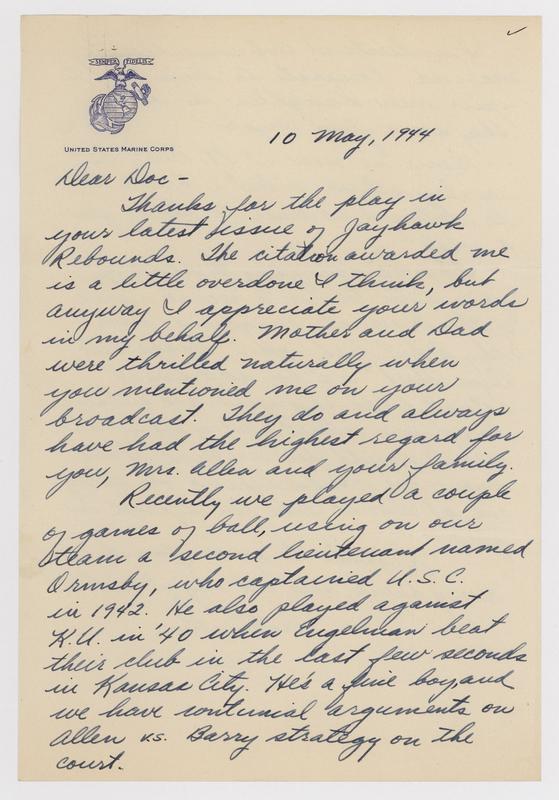 SEMPER FIDELIS
UNITED STATES MARINE CORPS
10 May, 1944
Dear Doc -
Thanks for the play in
your latest issue of Jayhawk
Rebounds. The citation awarded me
is a little overdone I think, but
anyway I appreciate your words
in my behalf. Mother and Dad
were thrilled naturally when
you mentioned me on your
broadcast. They do and always
have had the highest regard for
you, Mrs. Allen and your family.
Recently we played a couple
of games of ball, using on our
team a second lieutenant named
Ormsby, who captained U.S.C.
in 1942. He also played against
K.U. in '40 when Engelman beat
their club in the last few seconds
in Kansas City. He's a fine boy, and
we have continual arguments on
Allen vs. Barry strategy on the
court.